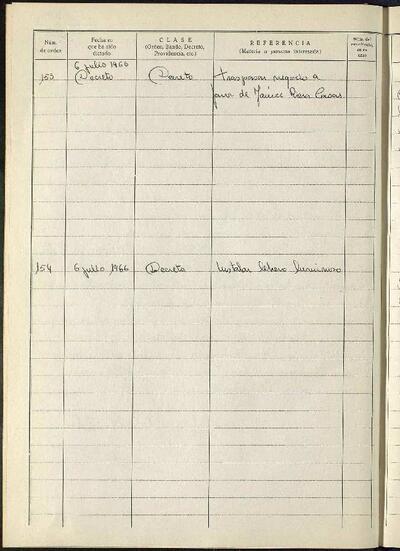 Núm. de orden
Fecha en que ha sido dictado
CLASE
(Orden, Bando, Decreto, Providencia, etc.)
REFERENCIA
(Materia o persona interesada)
6 julio 1966
153 Decreto Decreto traspasar negocio a
favor de Jaime Rosa Casas
154 6 julio 1966 Decreto Instalar letrero luminoso